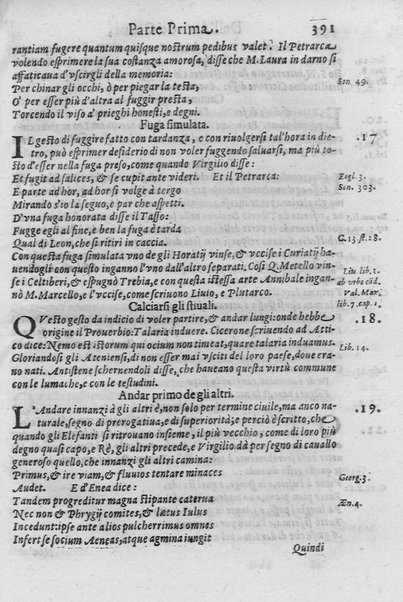 Parte Prima. 391
rantiam fugere quantum quisque nostrum pedibus valet. Il Petrarca
volendo esprimere la sua costanza amorosa, disse che M. Laura in darno si
affaticaua d'vscirgli della memoria:
Per chinar gli occhi, ò per piegar la testa, Son. 49.
O' per esser più d'altra al fuggir presta,
Torcendo il viso a' prieghi honesti, e degni.
Fuga simulata.
IL gesto di fuggire fatto con tardanza, e con riuolgersi tal'hora in die- .17.
tro, può esprimer desiderio di non voler fuggendo saluarsi, ma più to-
sto d'esser nella fuga preso, come quando Virgilio disse:
Et fugit ad salices, & se cupit ante videri. Et il Petrarca: Eogl. 3.
E parte ad hor, ad hor si volge à tergo Son. 303.
Mirando s'io la seguo, e par che aspetti.
D'vna fuga honorata disse il Tasso:
Fugge egli al fine, e ben la fuga è tarda
Qual di Leon, che si ritiri in caccia. C. 13. st. 28.
Con questa fuga simulata vno de gli Horatij vinse, & vccise i Curiatij ha-
uendogli con questo inganno l'vno dall'altro separati. Così Q. Metello vin- Liu. lib. 1.
se i Celtiberi, & espugnò Trebia, e con questa istessa arte Annibale ingan- ab vrbe cõd.
nò M. Marcello, e l'vccise, come scriuono Liuio, e Plutarco. Val. Mar.
lib. 7. cap. 4.
Calciarsi gli stiuali.
QVesto gesto dà indicio di voler partire, & andar lungi: onde hebbe .18.
origine il Prouerbio: Talaria induere. Cicerone scriuendo ad Atti-
co dice: Nemo est istorum qui ocium non timeat, quare talaria induamus. Lib. 14.
Gloriandosi gli Ateniensi, di non esser mai vsciti del loro paese, doue era-
no nati. Antistene schernendoli disse, che haueano questa virtù commune
con le lumache, et con le testudini.
Andar primo de gli altri.
L'Andare innanzi à gli altri è, non solo per termine ciuile, ma anco na- .19.
turale, segno di prerogatiua, e di superiorità; e perciò è scritto, che
quando gli Elefanti si ritrouano insieme, il più vecchio, come di loro più
degno quasi capo, e Rè, gli altri precede, e Virgilio dà per segno di cauallo
generoso quello, che innanzi gli altri camina:
Primus, & ire viam, & fluuios tentare minaces Georg. 3.
Audet. E d'Enea dice: Æn. 4.
Tandem progreditur magna stipante caterua
Nec non & Phrygij comites, & lætus Iulus
Incedunt ipse ante alios pulcherrimus omnes
Infert se socium Aeneas, atque agmina iungit
Quindi